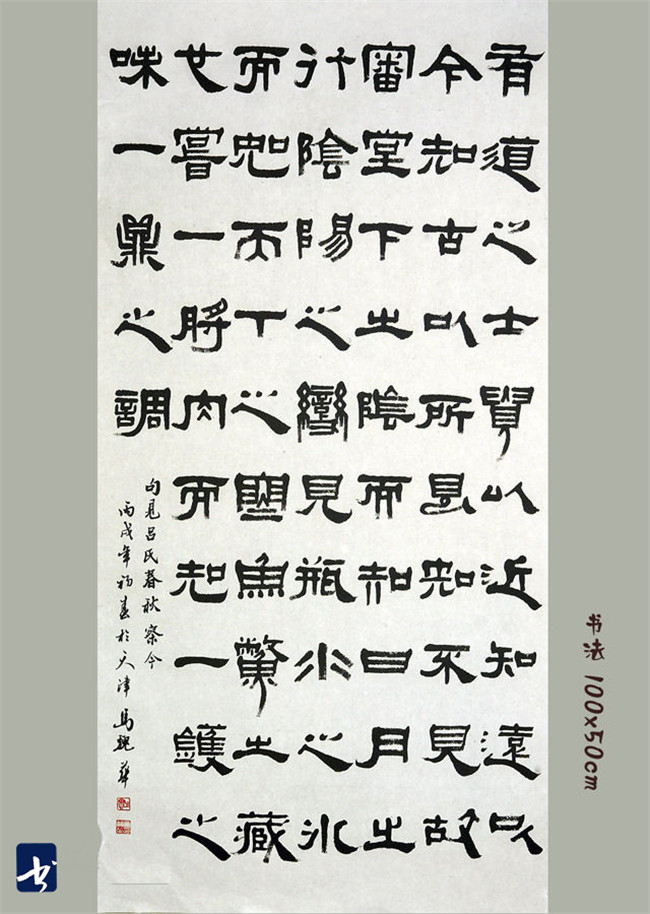 有道之士貴以近知遠以
今知古以所見知不見故
審堂下之陰而知日月之
行陰陽之變見瓶水之冰
而知天下之寒魚鱉之藏
也嘗一脟肉而知一鑊之
味一鼎之調
句見呂氏春秋察今
丙戌年初春於天津馬華
书法 100x50cm
书